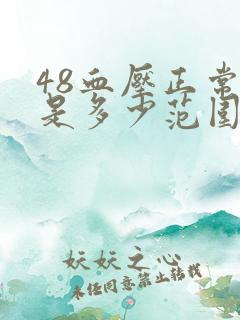 48血压正常
是多少范围
妖妖之心
未经同意禁止转载